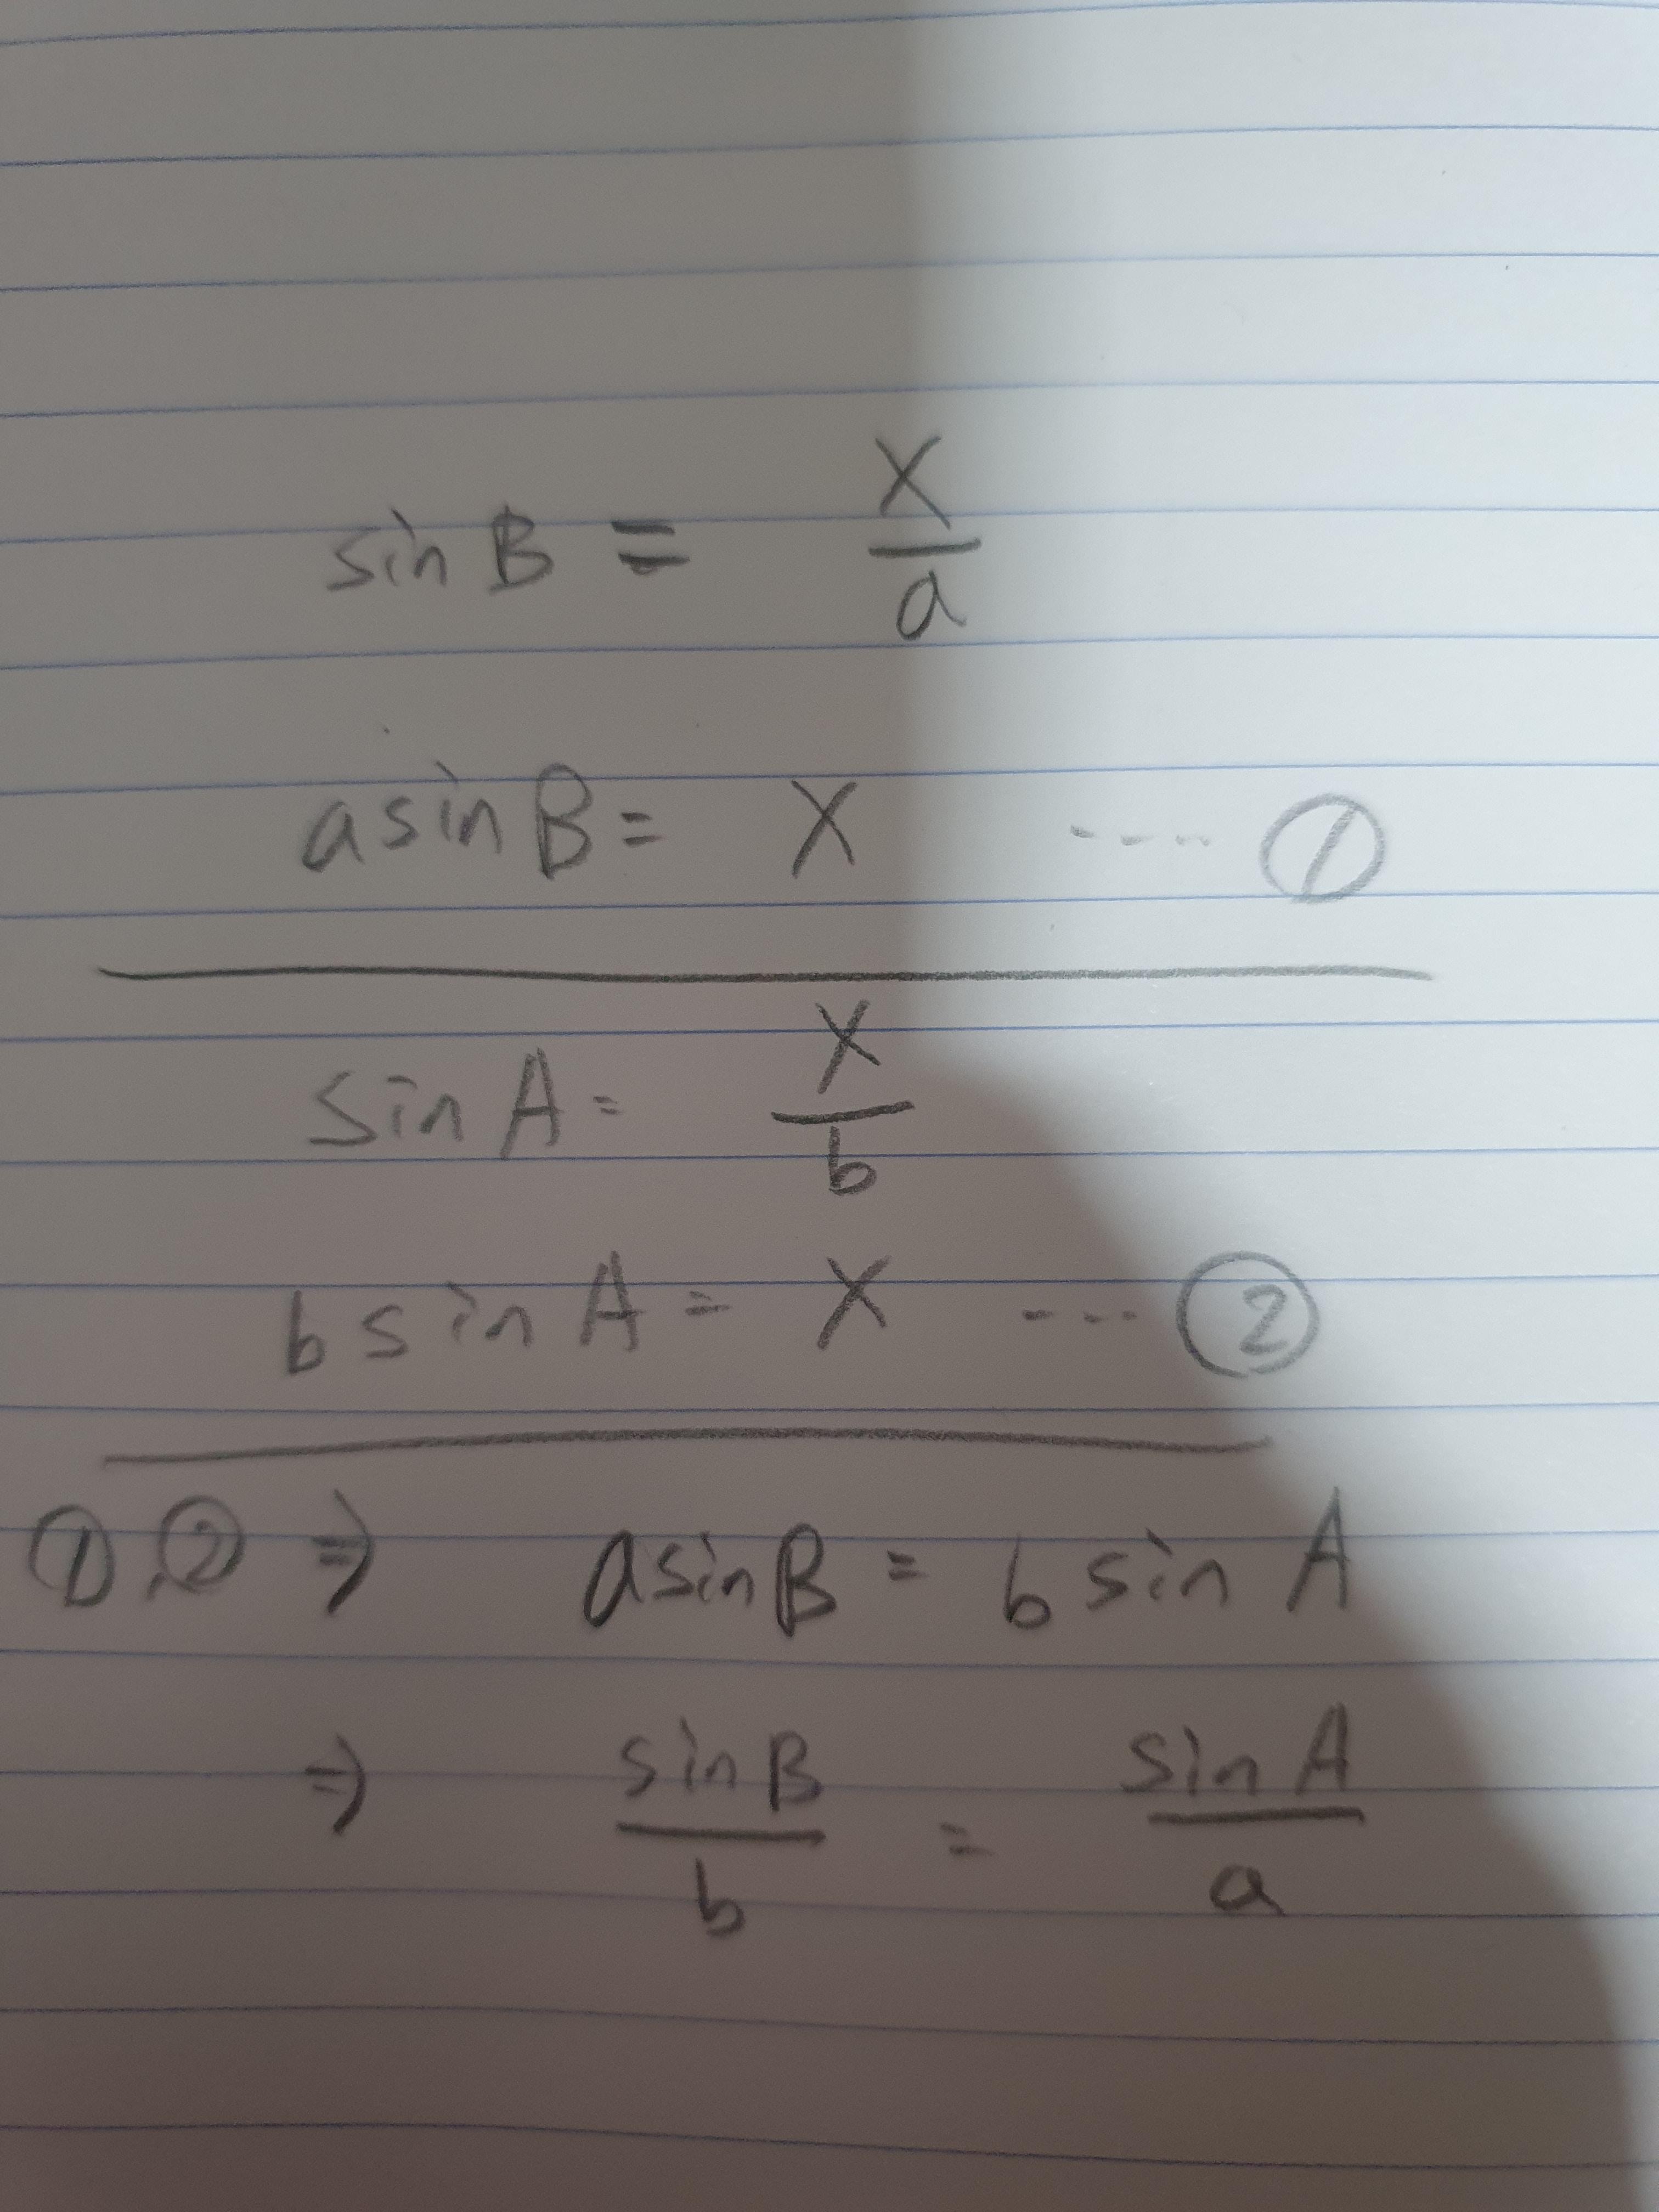 sin B = x/a
a sin B = x ---- ①
sin A = x/b
b sin A = x ---- ②
①,② ⇒ a sin B = b sin A
⇒ sin B/b = sin A/a